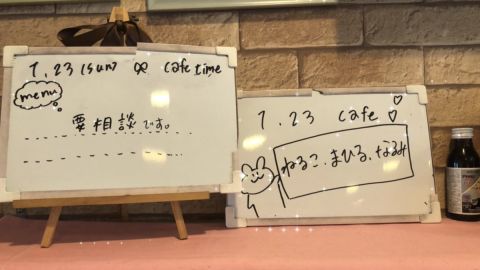 7.23 (sun) cafe time
menu
要相談です。
7.23 cafe
ねるこ、まひる、なるみ